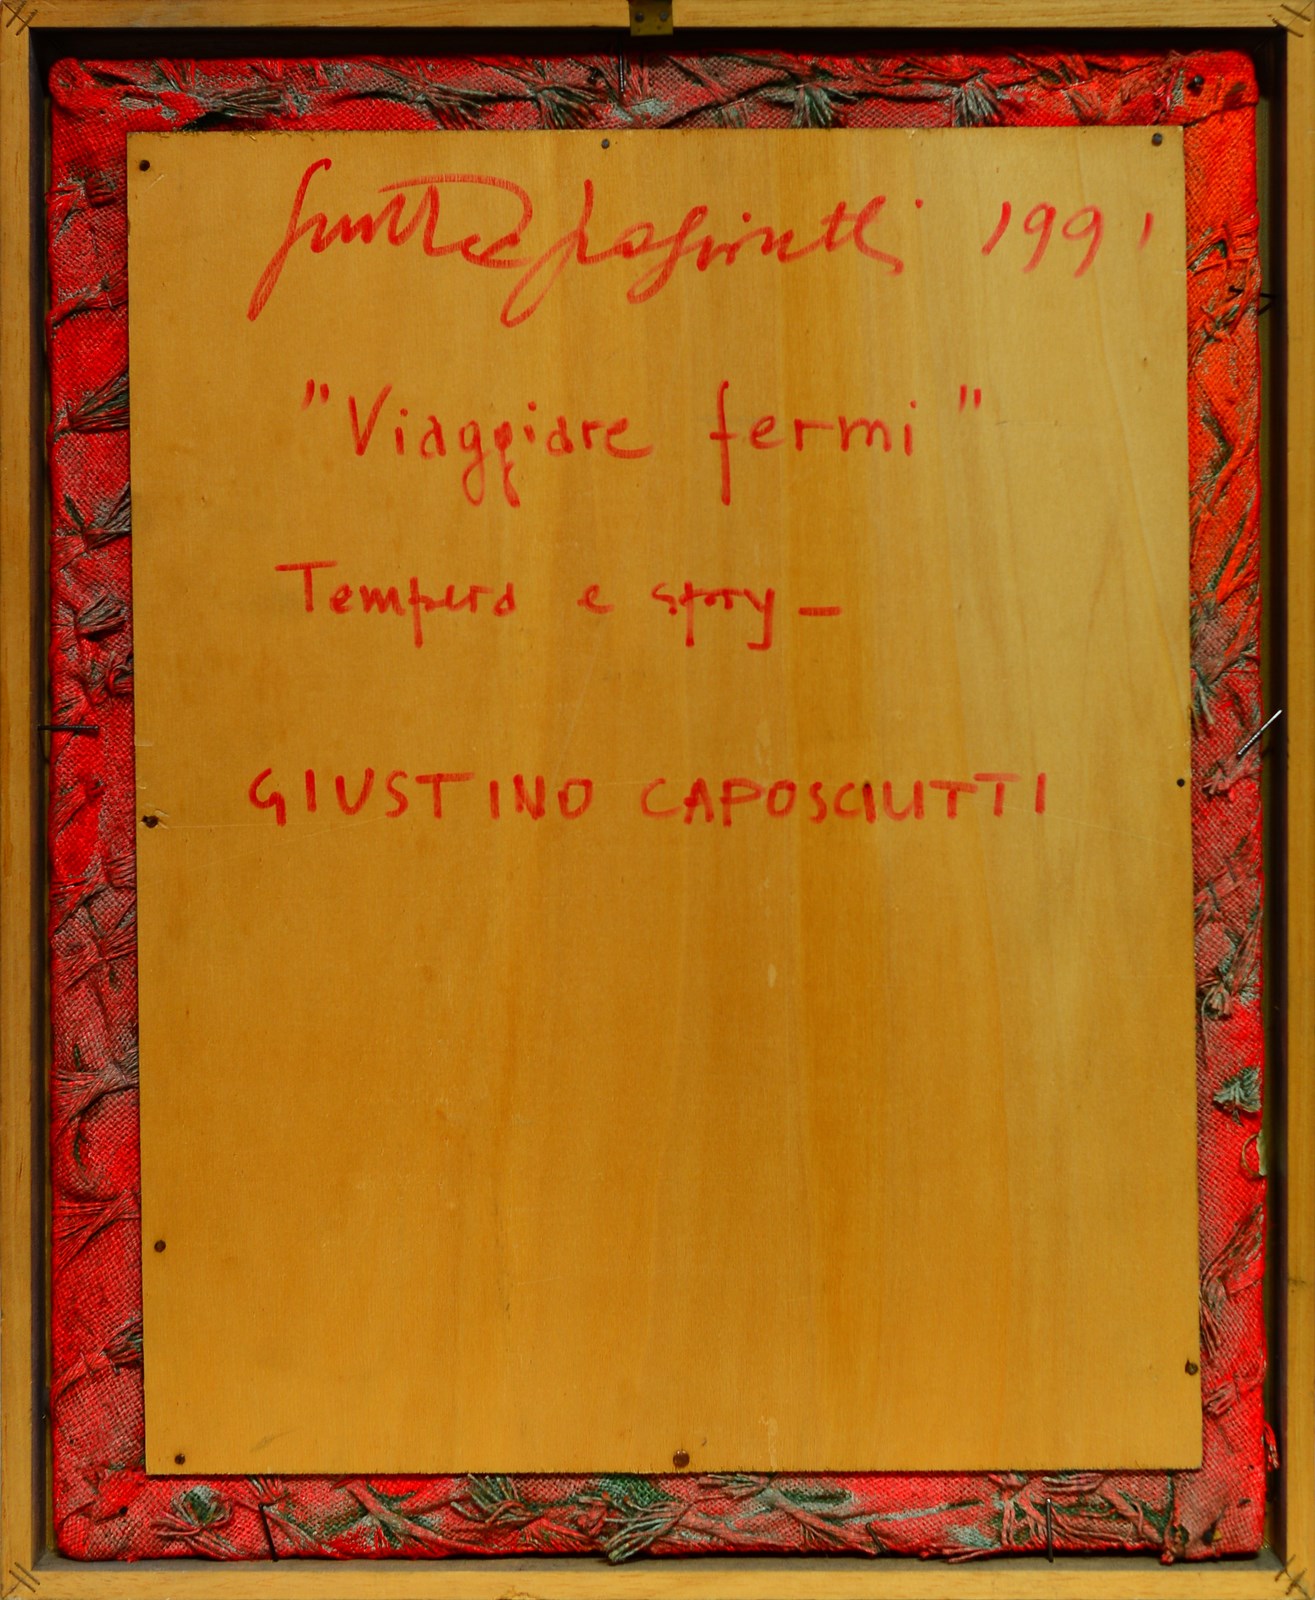 Giustino Caposciutti 1991
"Viaggiare fermi"
Tempera e story_
GIUSTINO CAPOSCIUTTI